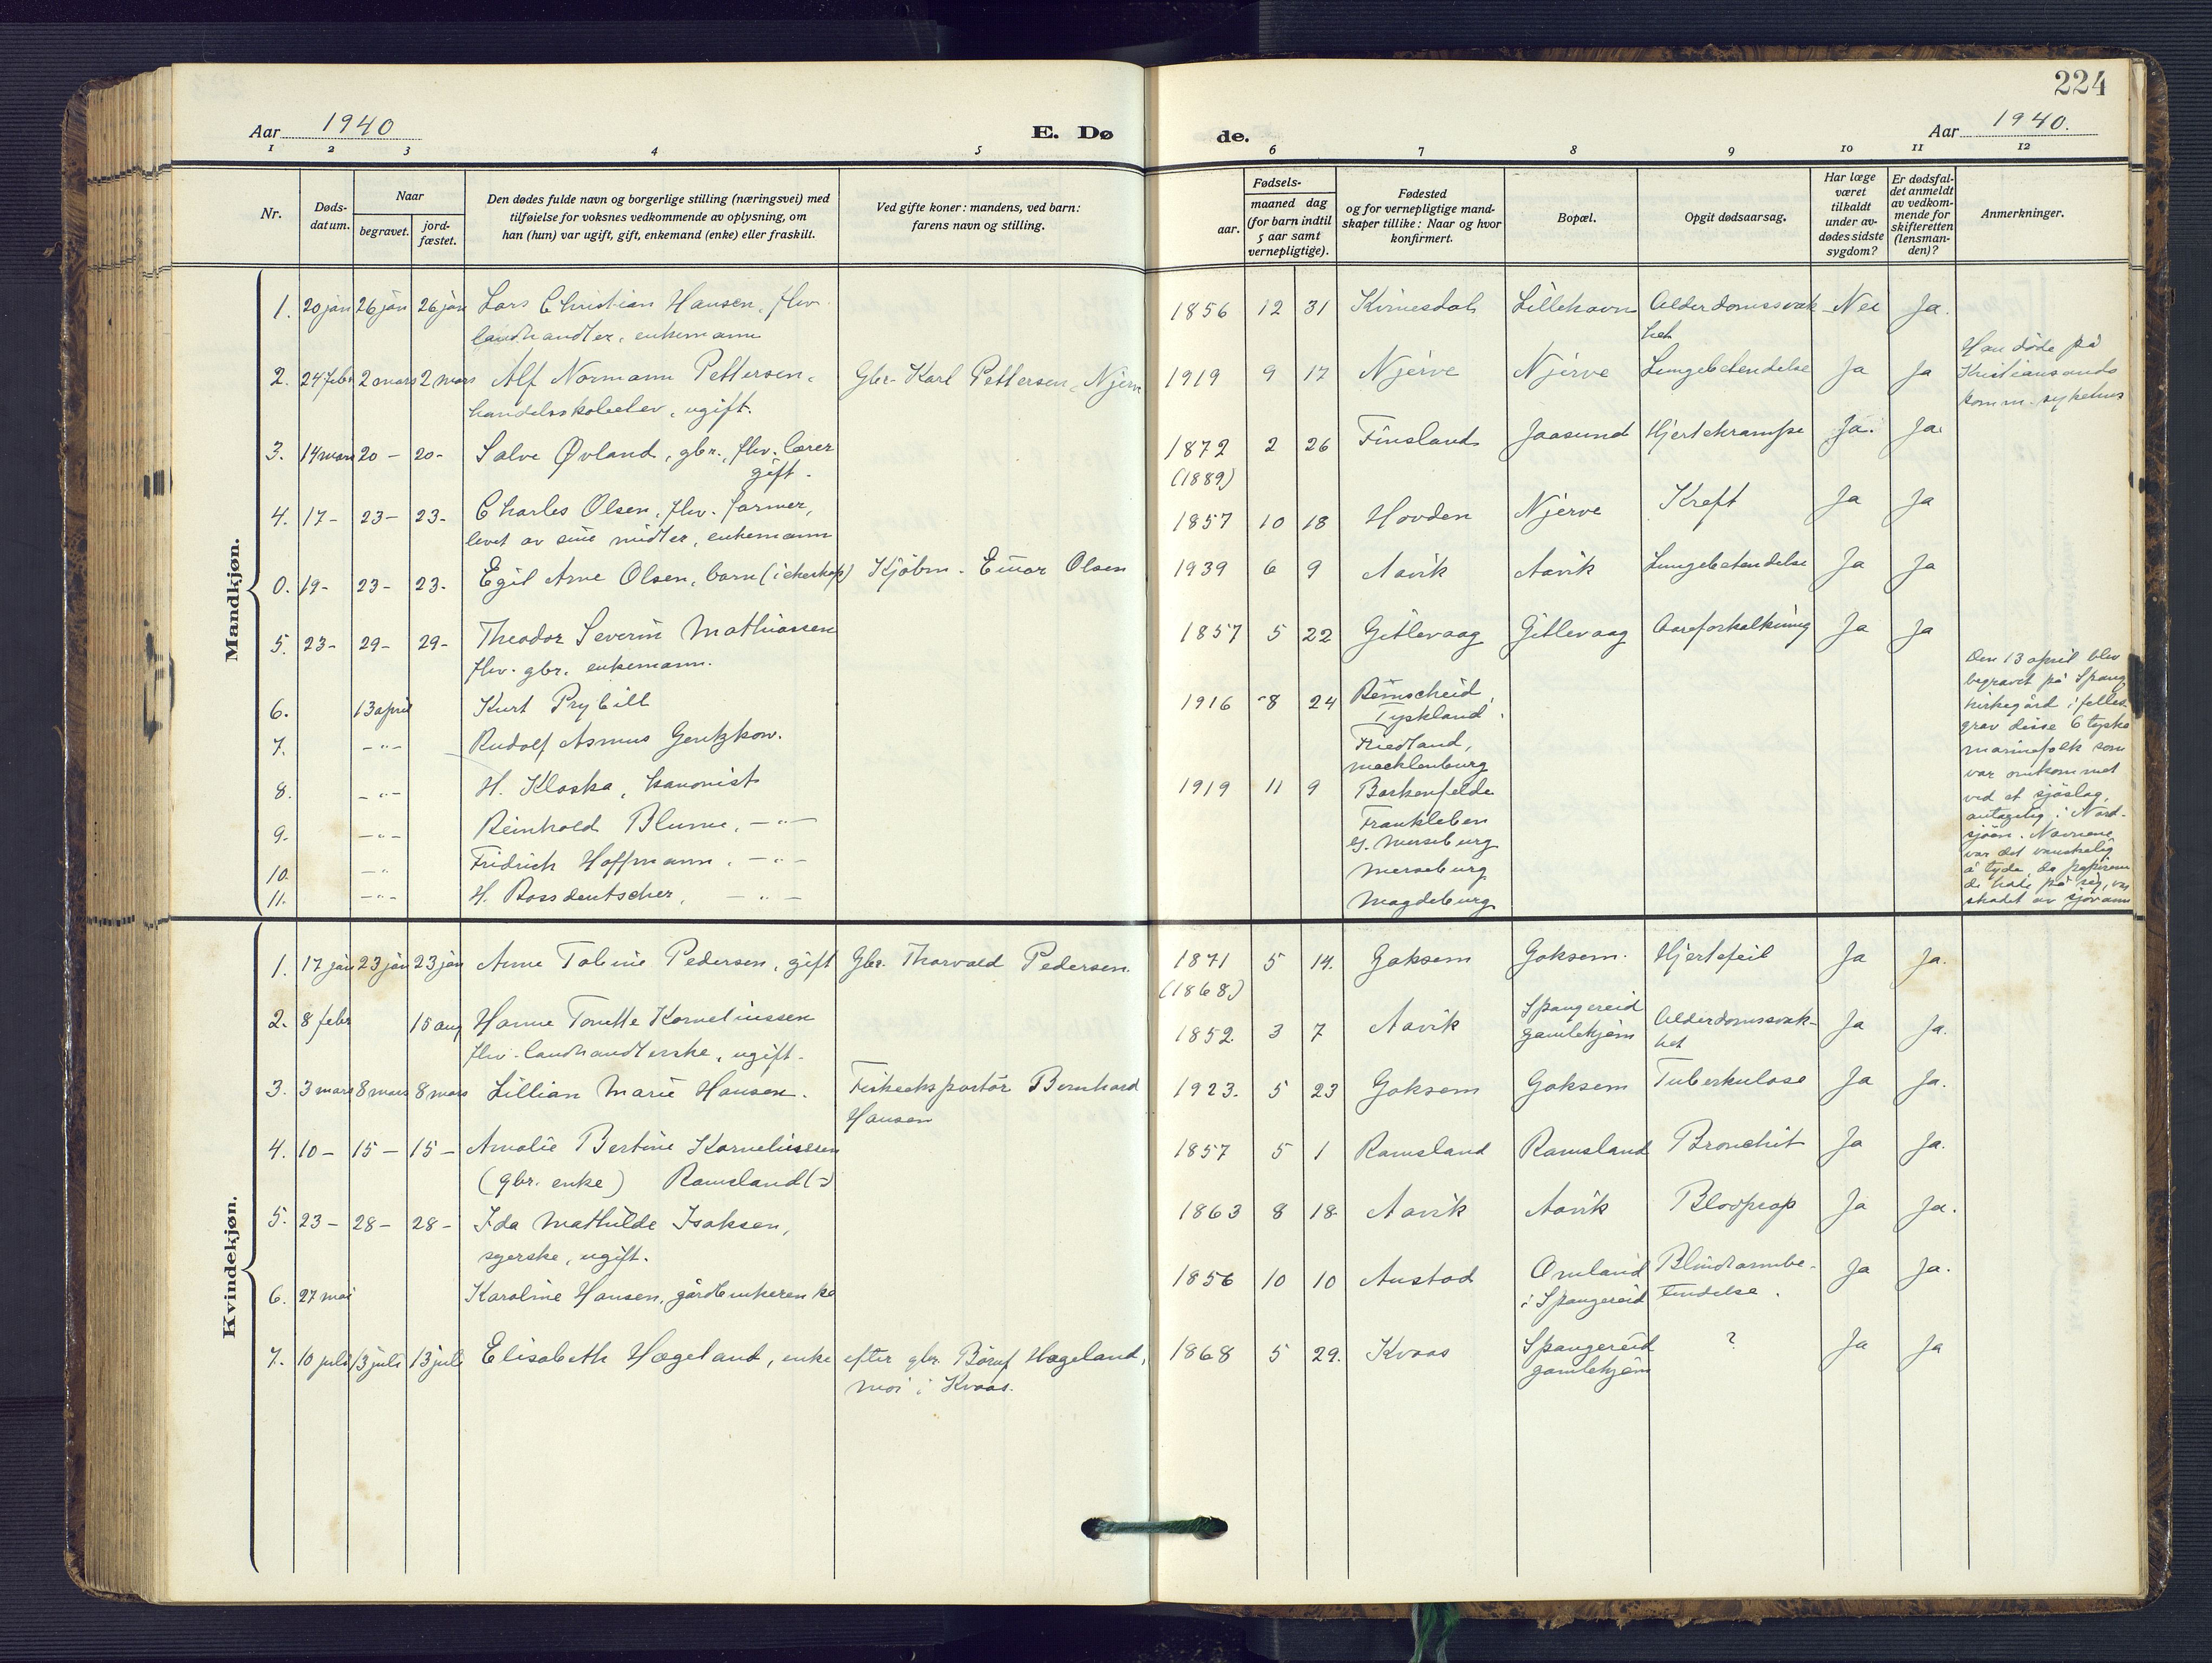 224
Aar 1940
E. Dø
de.
Aar 1940.
1 2 3 4 5 6 7 8 9 10 11 12
Nr.
Døds-
datum.
Naar
begravet.
jord-
fæstet.
Den dødes fulde navn og borgerlige stilling (næringsvei) med
tilføielse for voksnes vedkommende av oplysning, om
han (hun) var ugift, gift, enkemand (enke) eller fraskilt.
Ved gifte koner: mandens, ved barn:
farens navn og stilling.
Fødsels-
aar.
maaned dag
(for barn indtil
5 aar samt
vernepligtige).
Fødested
og for vernepligtige mand-
skaper tillike: Naar og hvor
konfirmert.
Bopæl.
Opgit dødsaarsag.
Har læge
været
tilkaldt
under av-
dødes sidste
sygdom?
Er dødsfal-
det anmeldt
av vedkom-
mende for
skifteretten
(lensman-
den)?
Anmerkninger.
Mandkjøn.
1. 20 jan 26 jan 26 jan Lars Christian Hansen, flv. 1856 12 31 Kvinesdal Lillehavn Alderdomssvak- Nei Ja.
landhandler, enkemann het
2. 24 febr 2 mars 2 mars Alf Normann Pettersen, Gbr. Karl Pettersen, Njerve 1919 9 17 Njerve Njerve Lungebetendelse Ja Ja
handelsskoleelev, ugift.
Han døde på
Kristiansands
komm. sykehus
3. 14 mars 20 - 20 - Salve Øvland, gbr., flv. lærer 1872 2 26 Finsland Jaasund Hjertekrampe Ja. Ja.
gift. (1889)
4. 17 - 23 - 23 - Charles Olsen, flv. farmer, 1857 10 18 Hovden Njerve Kreft Ja Ja
levet av sine midler, enkemann
0. 19 - 23 - 23 - Egil Arne Olsen, barn (i ekteskap) Kjøbm. Einar Olsen 1939 6 9 Aavik Aavik Lungebetendelse Ja Ja
5. 23 - 29 - 29 - Theodor Severin Mathiassen 1857 5 22 Gitlevaag Gitlevaag Aareforkalkning Ja Ja
flv. gbr. enkemann.
6. 13 april Kurt Prybill 1916 8 24 Remscheid,
Tyskland.
7. -"- Rudolf Asmus Gentzkow. Friedland,
Mecklenburg
8. -"- H. Kloska, kanonist 1919 11 9 Barkenfelde
9. -"- Reinhold Blume, -"- Frankleben
G. Merseburg
10. -"- Fridrich Hoffmann, -"- Merseburg
11. -"- H. Rossdeutscher, -"- Magdeburg
Den 13 april blev
begravet på Spang.
kirkegård i felles-
grav disse 6 tyske
marinefolk som
var omkommet
ved et sjøslag,
antagelig i Nord-
sjøen. Navnene
var det vanskelig
å tyde, da papirene
de hade på sig, var
skadet av sjøvann
Kvindekjøn.
1. 17 jan 23 jan 23 jan Anne Tobine Pedersen, gift Gbr. Thorvald Pedersen. 1871 5 14. Goksem Goksem. Hjertefeil Ja Ja.
(1868)
2. 8 febr 15 aug Hanne Tonette Korneliussen 1852. 3 7 Aavik Spangereid Alderdomssvak- Ja Ja.
flv. landhandlerske, ugift. gamlehjem het
3. 3 mars 8 mars 8 mars Lillian Marie Hansen. Fiskeeksportør Bernhard 1923. 5 23 Goksem Goksem Tuberkulose Ja Ja.
Hansen
4. 10 - 15 - 15 - Amalie Bertine Korneliussen 1857 5 1 Ramsland Ramsland Bronchit Ja Ja.
(gbr. enke) Ramsland (=)
5. 23 - 28 - 28 - Ida Mathilde Isaksen, 1863 8 18. Aavik Aavik Blodprop Ja Ja.
syerske, ugift.
6. 27 mai Karoline Hansen, gårdbrukerenke 1856 10 10 Austad Omland Blindtarmbe- Ja Ja.
i Spangereid tendelse.
7. 10 juli 13 juli 13 juli Elisabeth Hægeland, enke efter gbr. Børuf Hægeland, 1868 5 29. Kvaas Spangereid ? Ja Ja
Moi i Kvaas. gamlehjem